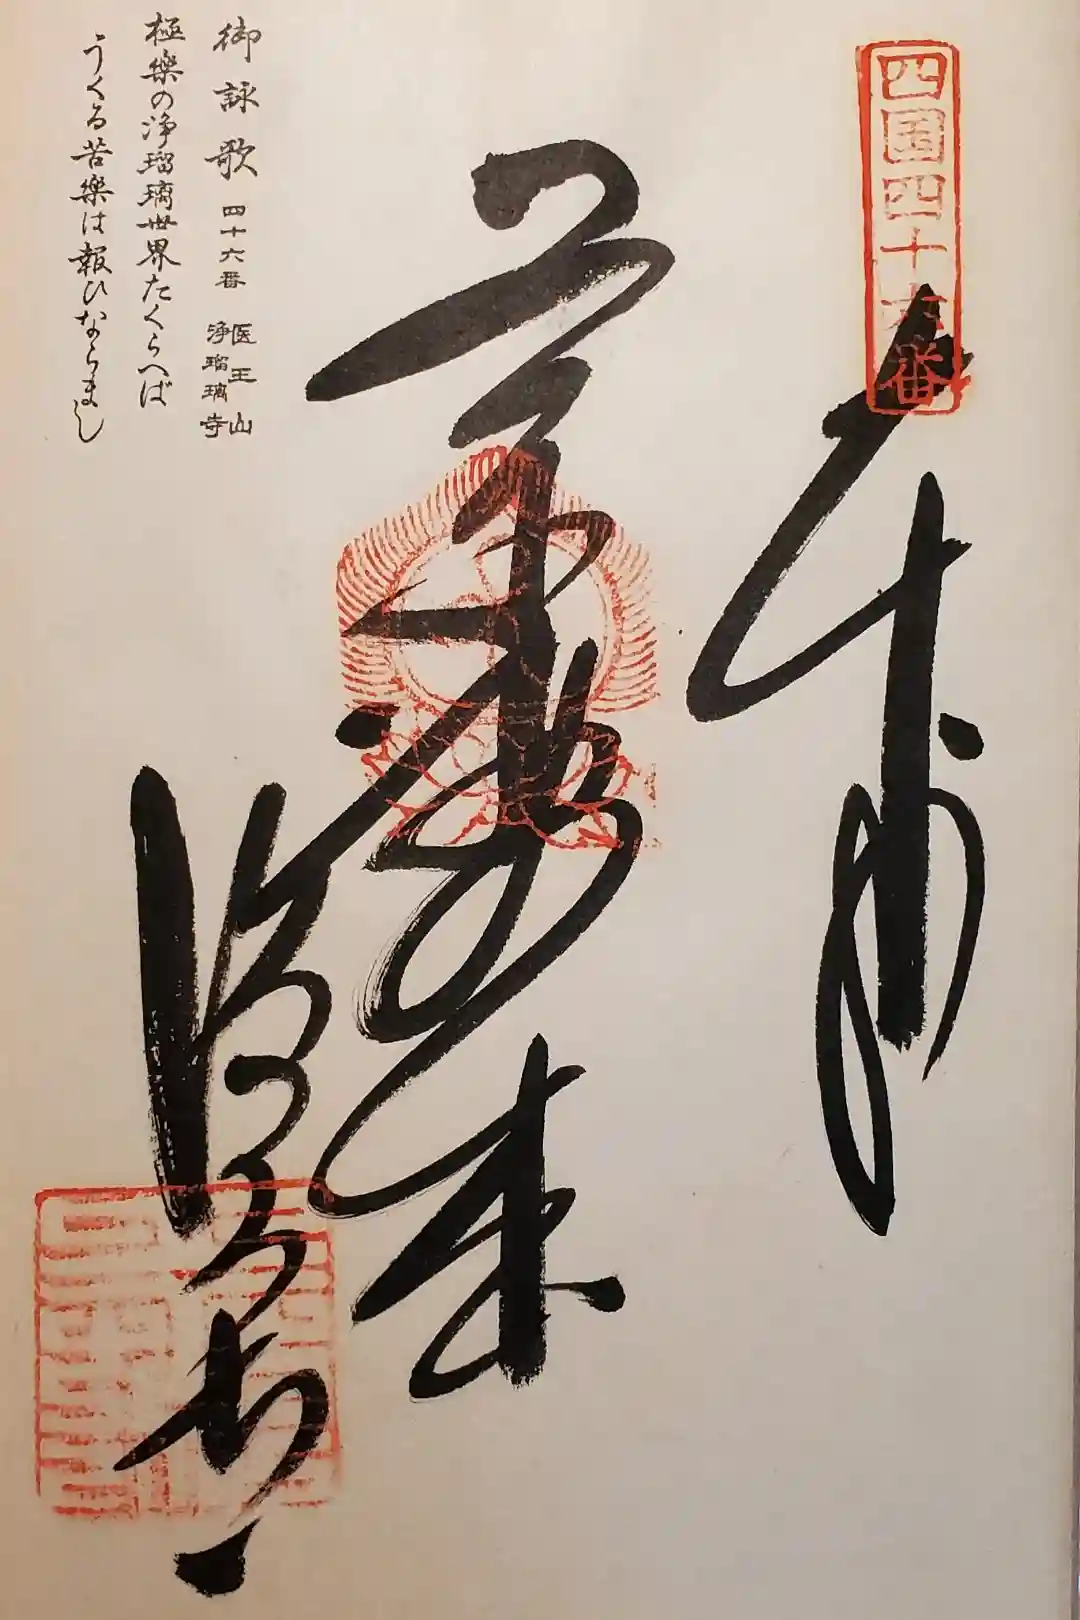 四国四十六番
奉納
薬師如来
浄瑠璃寺
御詠歌 四十六番 医王山 浄瑠璃寺
極樂の浄瑠璃世界たくらへば
うくる苦樂は報ひならまし